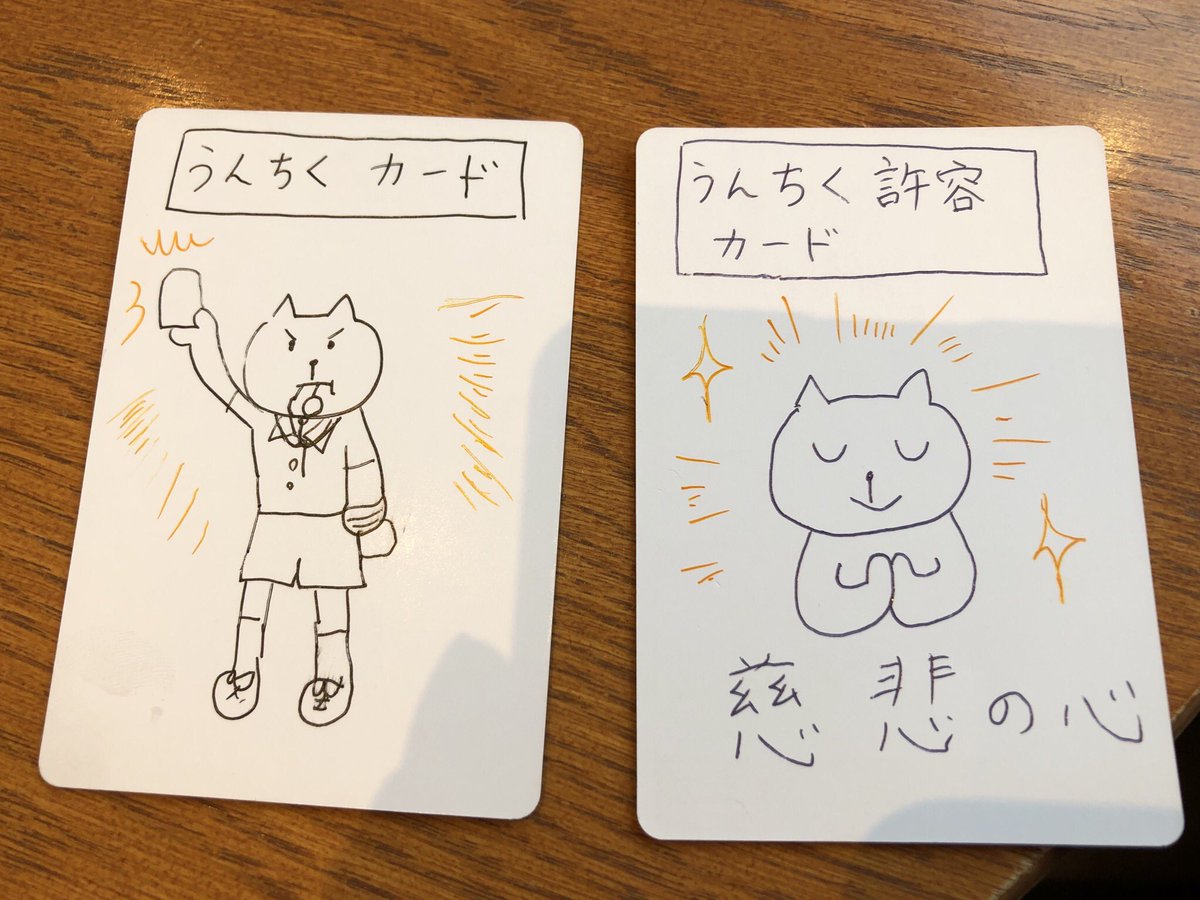 うんちく カード
うんちく 許容
カード
慈悲の心